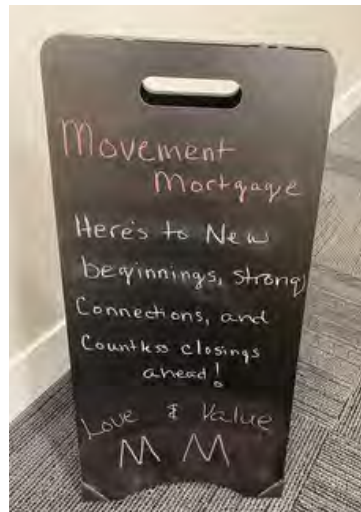 Movement
Mortgage
Here's to New
beginnings, strong
Connections, and
Countless closings
ahead!
Love & Value
M M